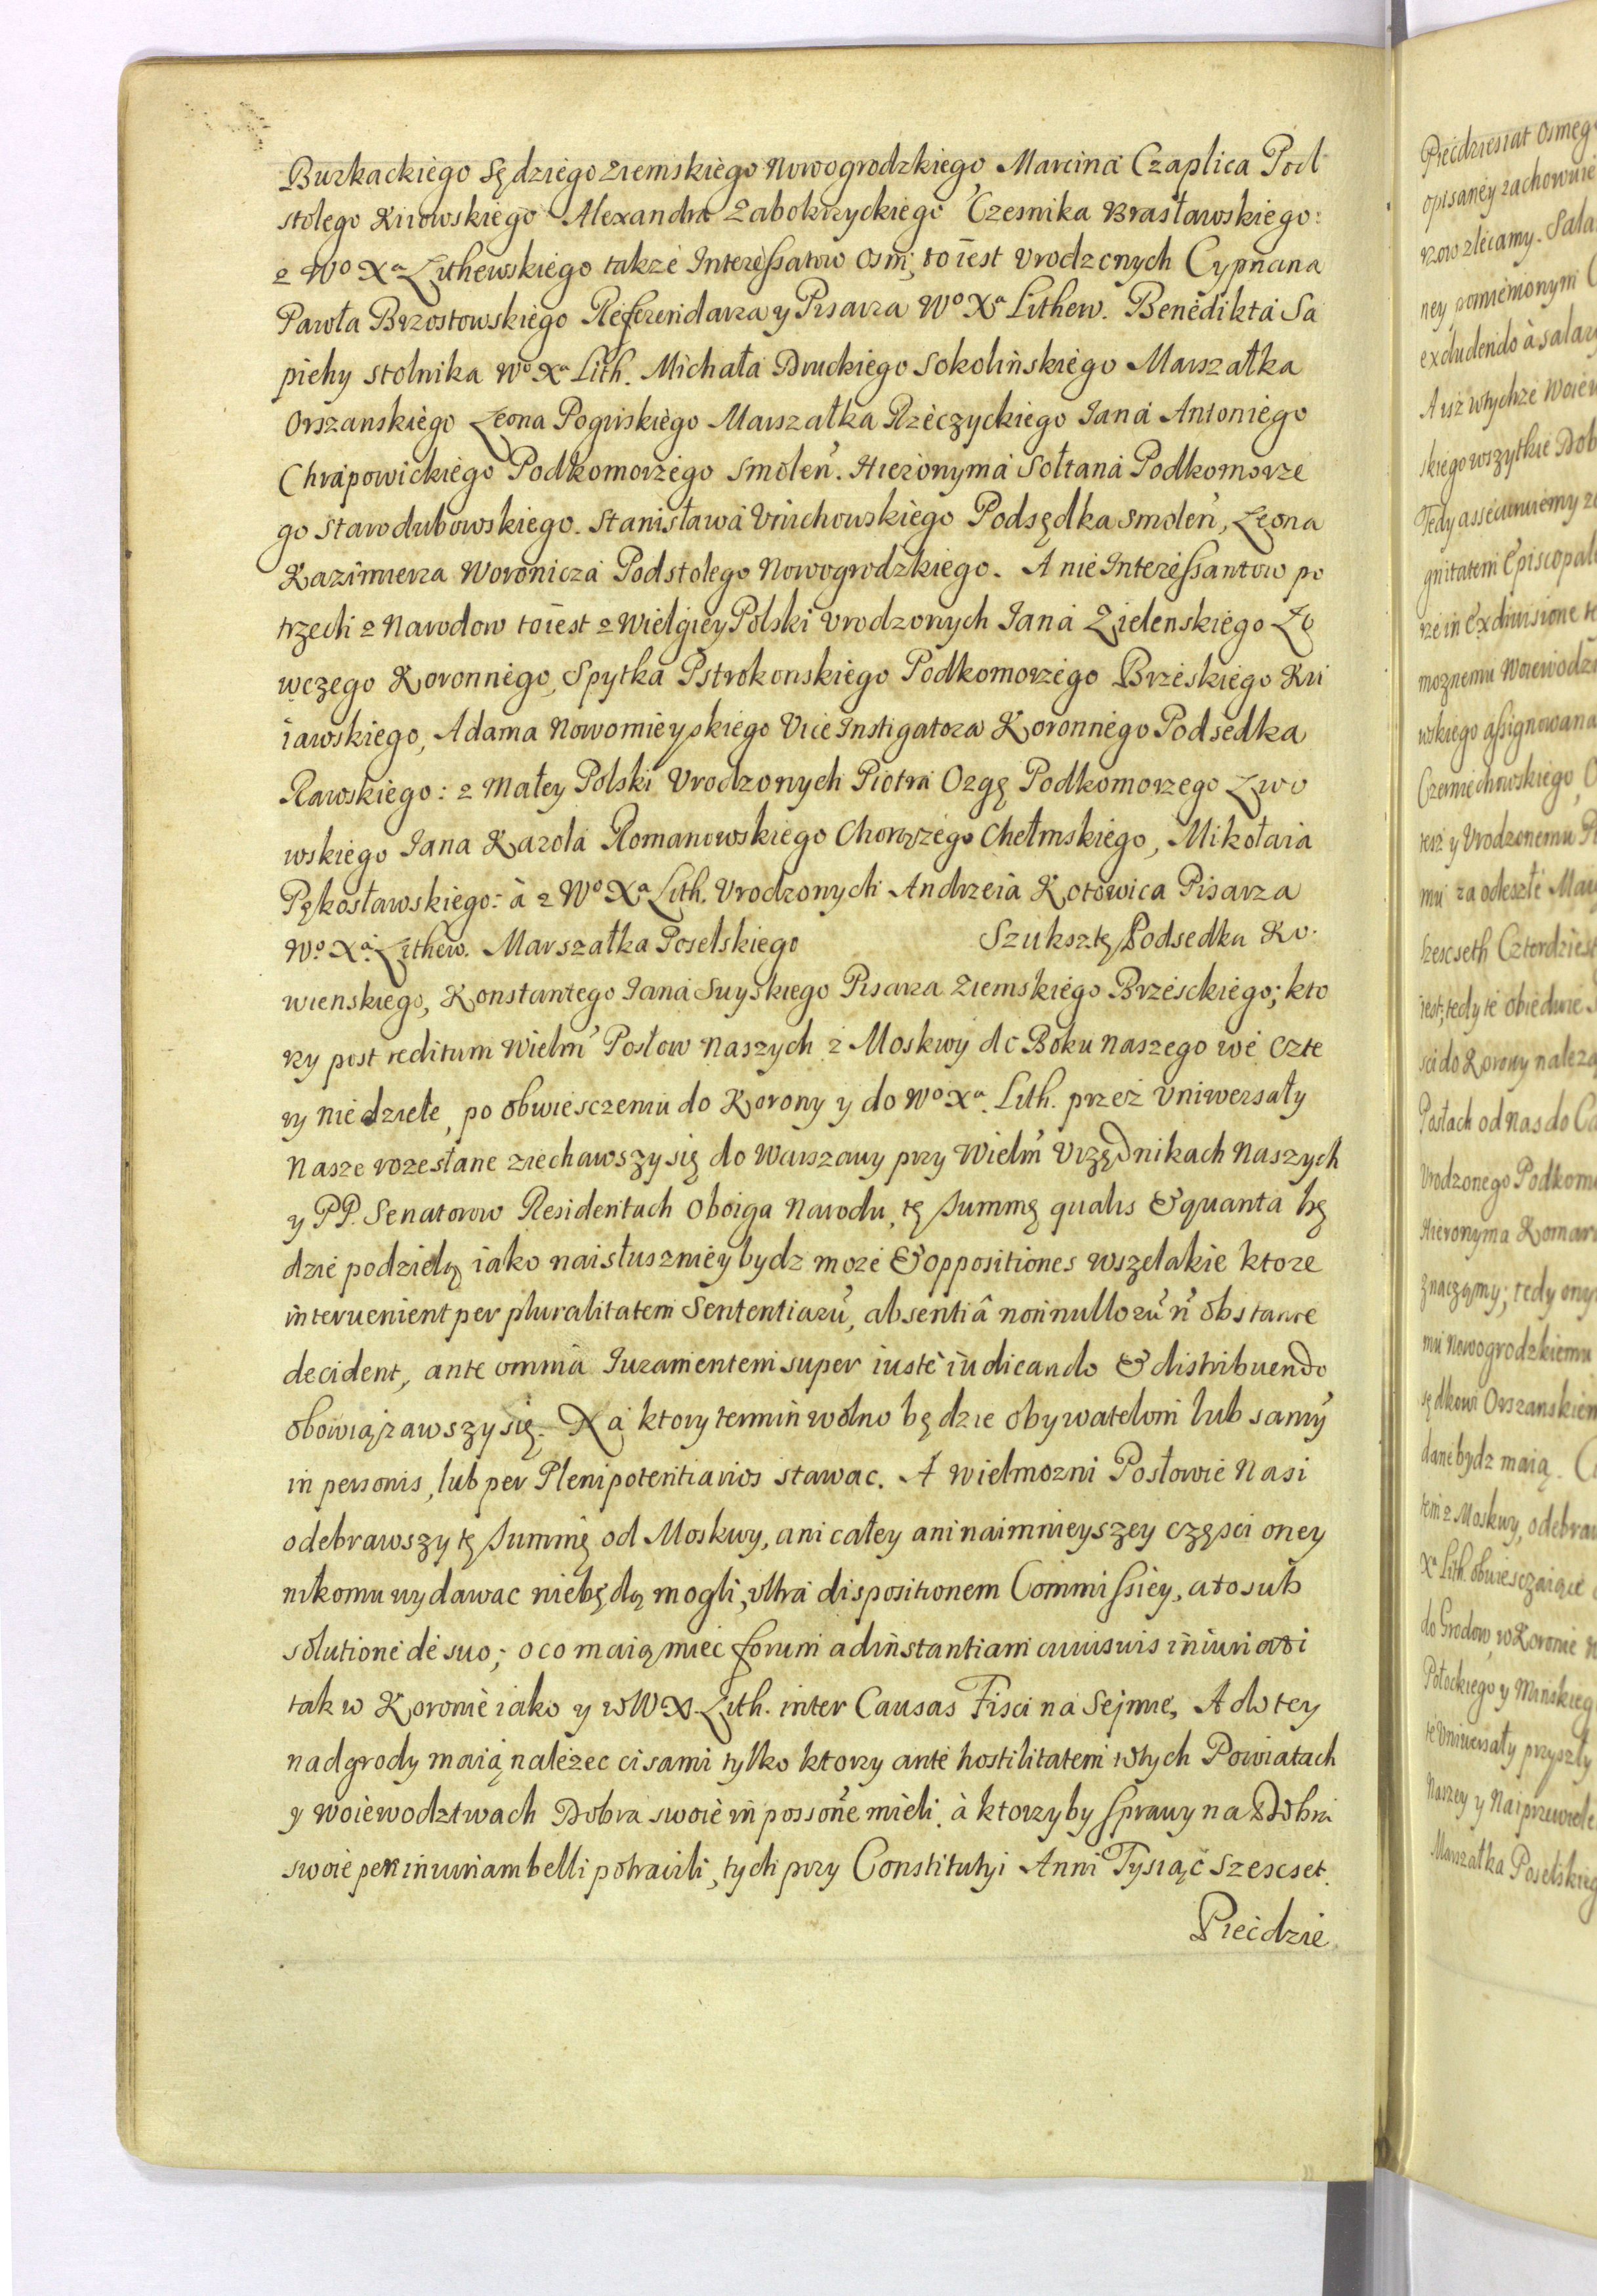 Burkackiego Sędziego Ziemskiego Nowogrodzkiego Marcina Czaplica Pod
stolego Kiiowskiego Alexandra Zabokrzyckiego Czesnika Brasławskiego:
z Wº Xª Lithewskiego także Interessatow osm, to iest Vrodzonych Cypriana
Pawła Brzostowskiego Referendarza y Pisarza Wº Xª Lithew. Benedikta Sa
piehy Stolnika Wº Xª Lith. Michała Druckiego Sokolińskiego Marszałka
Orszanskiego Leona Pogirskiego Marszałka Rzeczyckiego Jana Antoniego
Chrapowickiego Podkomorzego Smolen. Hieronyma Sołtana Podkomorze
go Starodubowskiego. Stanisława Vniichowskiego Podsędka Smolen, Leona
Kazimierza Woronicza Podstolego Nowogrodzkiego. A nie Interessantow po
trzech z Narodow to iest z Wielgiey Polski Vrodzonych Jana Zielenskiego Ło
wczego Koronnego, Spytka Pstrokonskiego Podkomorzego Brzeskiego Ku
iawskiego, Adama Nowomieyskiego Vice Instigatora Koronnego Podsedka
Rawskiego: z Małey Polski Vrodzonych Piotra Ozgę Podkomorzego Lwo
wskiego Jana Karola Romanowskiego Chorązego Chełmskiego, Mikołaia
Pękosławskiego: à z Wº Xª Lith. Vrodzonych Andrzeia Kotowica Pisarza
Wº Xª Lithew. Marszałka Poselskiego Szuksztę Podsedka Ko
wienskiego, Konstantego Jana Suyskiego Pisarza Ziemskiego Brzesckiego; kto
rzy post reditum Wielm Posłow Naszych z Moskwy do Boku Naszego we czte
ry niedziele, po obwiesczeniu do Korony y do Wº Xª. Lith. przez Vniwersały
Nasze rozesłane ziechawszy się do Warszawy przy Wielm Vrzędnikach Naszych
y PP. Senatorow Residentach Oboiga Narodu, tę Summę qualis & quanta bę
dzie podzielą iako naisłuszniey bydz moze & oppositiones wszelakie ktore
intervenient per pluralitatem Sententiarū, absentiâ nonnullorū ñ obstante
decident, ante omnia Juramentem super iustè iudicando & distribuendo
obowiązawszy się. Na ktory termin wolno będzie obywatelom lub samÿ
in personis, lub per Plenipotentiarios stawac. A Wielmozni Posłowie Nasi
odebrawszy tę Summę od Moskwy, ani całey ani naimnieyszey częsci oney
nikomu wydawac nie będą mogli, vltra dispositionem Commissiey, a to sub
solutione de suo; o co maią miec forum ad instantiam cuiusuis iniuriati
tak w Koronie iako y w W X. Lith. inter Causas Fisci na Sejmie, A do tey
nadgrody maią nalezec ci sami tylko ktorzy ante hostilitatem w tych Powiatach
y Woiewodztwach Dobra swoie in possone mieli. à ktorzyby sprawy na Dobra
swoie per iniuriam belli potracili, tych przy Constitutyi Anni Tysiąc Szescset
Piecdzie
Piecdziesiat osmego
opisaney zachowuie
rzow zlecamy. Sala
ney pomienionym
excludendo à salar
A iz w tychze Woiew
skiego wszytkie Dob
Tedy assecuruiemy
gnitatem Episcopal
ze in Exdiuisione
moznemu Woiewodzi
wskiego assignowana
Czerniechowskiego
tesz y Vrodzonemu
mu za odeszłe
szescseth Czterdziest
iest; tedy te obiedwie
sci do Korony naleza
Posłach od Nas do
Vrodzonego Podkom
Hieronyma Komar
znaczamy; tedy ony
mu Nowogrodzkiemu
sędkowi Orszanskiem
dane bydz maią.
tem z Moskwy, odebraw
Xª Lith. obwiesczaiące
do Grodow, w Koronie
Połockiego y Minskieg
te Vniwersały przyszły
Naszey y Naiprzewiele
Marszałka Poselskieg